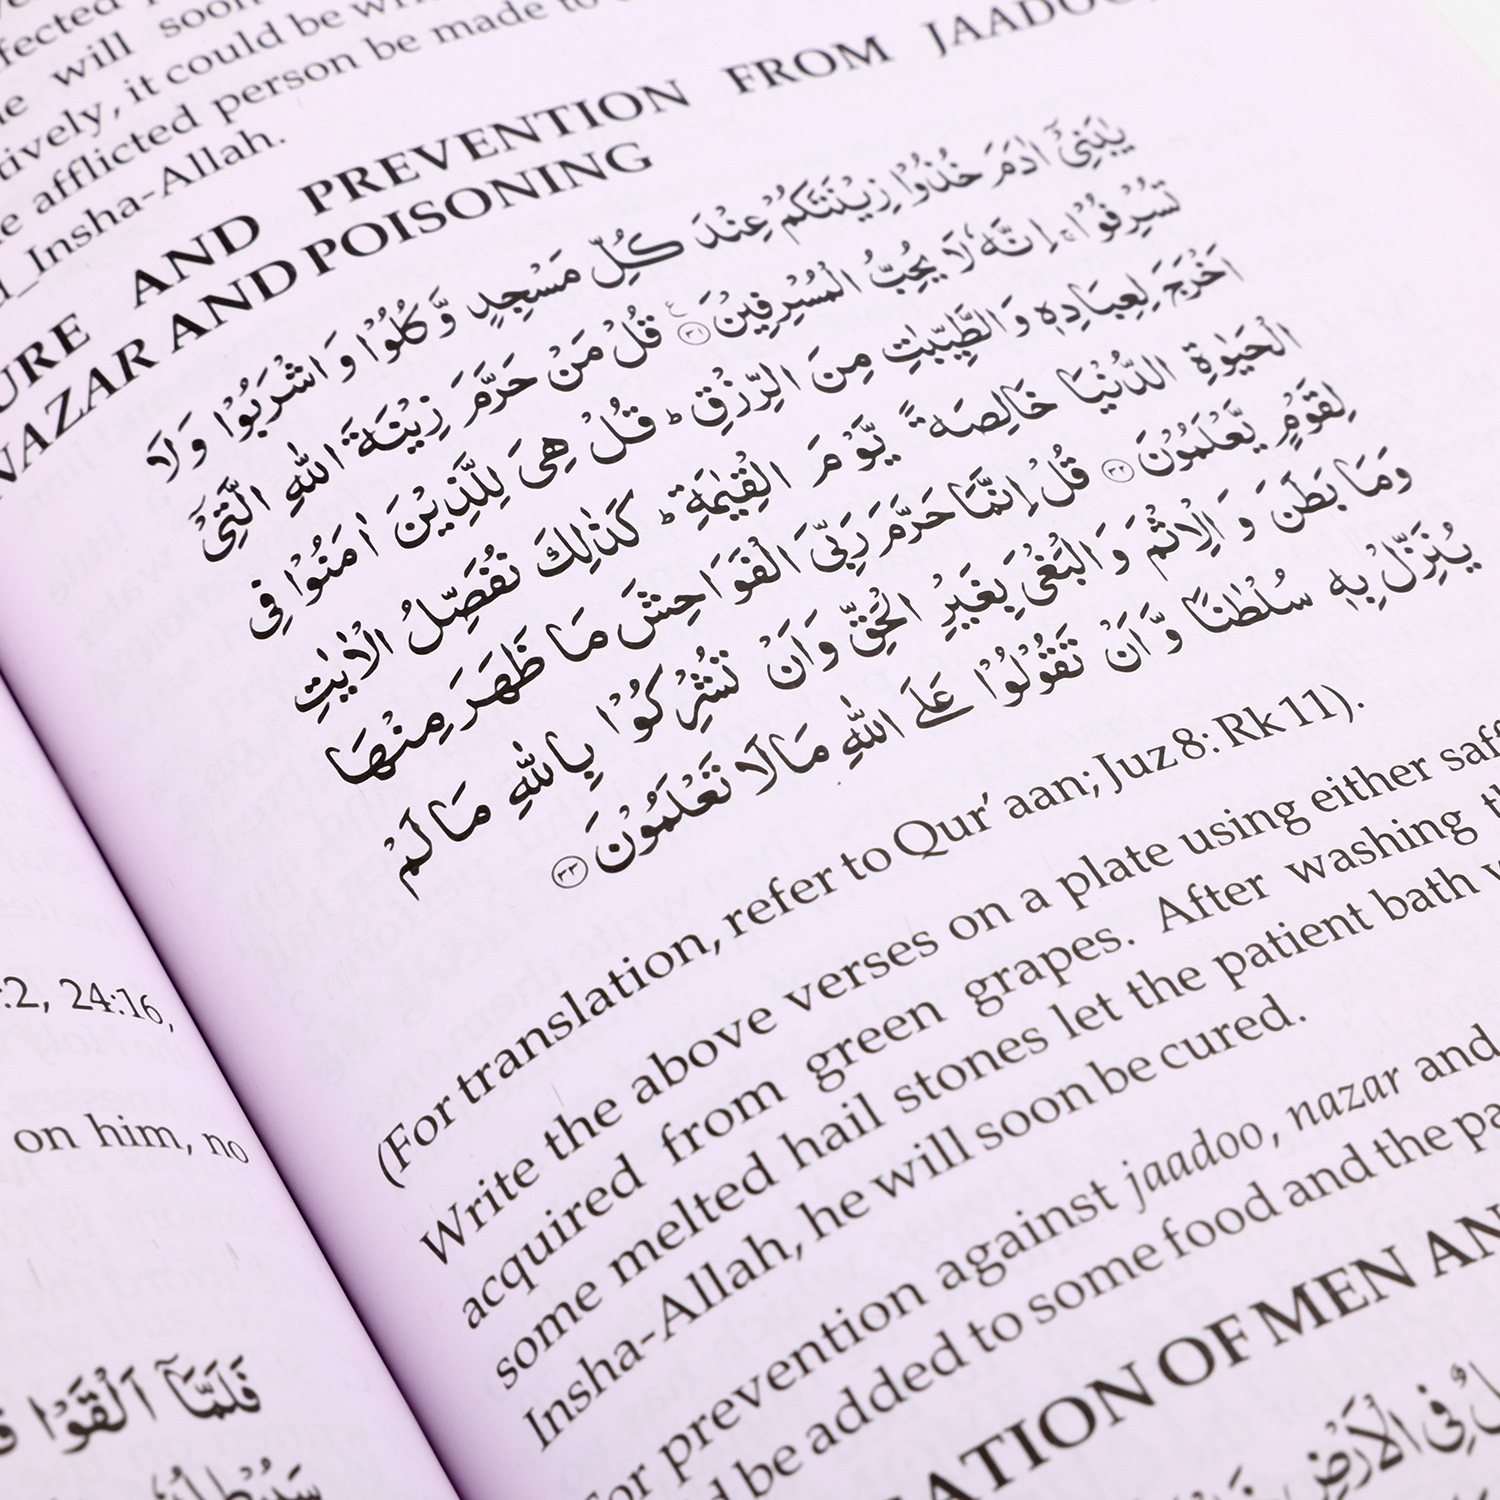 will soon
tively, it could be
e afflicted person be made to
Insha-Allah.
URE AND PREVENTION FROM
NAZAR AND POISONING
يٰبَنِيْٓ اٰدَمَ خُذُوْا زِيْنَتَكُمْ عِنْدَ كُلِّ مَسْجِدٍ وَّكُلُوْا وَاشْرَبُوْا وَلَا
تُسْرِفُوْا ۚ اِنَّهٗ لَا يُحِبُّ الْمُسْرِفِيْنَ ۝٣١ قُلْ مَنْ حَرَّمَ زِيْنَةَ اللّٰهِ الَّتِيْٓ
اَخْرَجَ لِعِبَادِهٖ وَالطَّيِّبٰتِ مِنَ الرِّزْقِ ؕ قُلْ هِىَ لِلَّذِيْنَ اٰمَنُوْا فِى
الْحَيٰوةِ الدُّنْيَا خَالِصَةً يَّوْمَ الْقِيٰمَةِ ؕ كَذٰلِكَ نُفَصِّلُ الْاٰيٰتِ
لِقَوْمٍ يَّعْلَمُوْنَ ۝٣٢ قُلْ اِنَّمَا حَرَّمَ رَبِّىَ الْفَوَاحِشَ مَا ظَهَرَ مِنْهَا
وَمَا بَطَنَ وَالْاِثْمَ وَالْبَغْىَ بِغَيْرِ الْحَقِّ وَاَنْ تُشْرِكُوْا بِاللّٰهِ مَا لَمْ
يُنَزِّلْ بِهٖ سُلْطٰنًا وَّاَنْ تَقُوْلُوْا عَلَى اللّٰهِ مَا لَا تَعْلَمُوْنَ ۝٣٣
(For translation, refer to Qur'aan; Juz 8: Rk 11).
Write the above verses on a plate using either saff
acquired from green grapes. After washing th
some melted hail stones let the patient bath w
Insha-Allah, he will soon be cured.
For prevention against jaadoo, nazar and
d be added to some food and the pa
ATION OF MEN AN
فِى الْاَرْضِ
:2, 24:16,
on him, no
فَلَمَّآ اَلْقَوْا